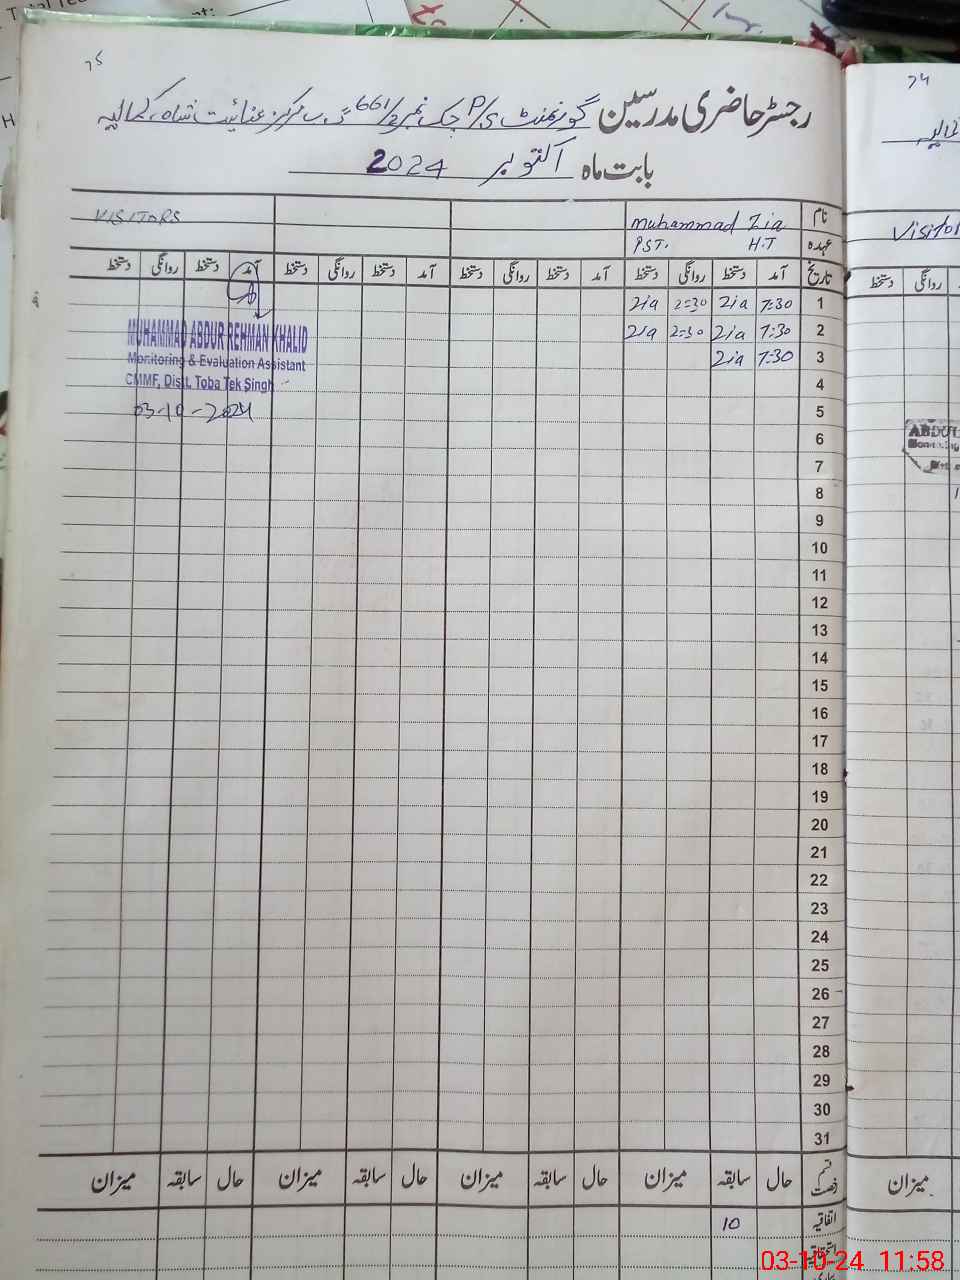 75
رجسٹر حاضری مدرسین گورنمنٹ P/S چک نمبر 661/2 گ ب مرکز عنائیت شاہ کمالیہ
بابت ماہ اکتوبر 2024
نام Muhammad Zia VISITORS
عہدہ PST. H.T
تاریخ آمد دستخط روانگی دستخط آمد دستخط روانگی دستخط آمد دستخط روانگی دستخط آمد دستخط روانگی دستخط
1 7:30 Zia 2:30 Zia
2 7:30 Zia 2:30 Zia
3 7:30 Zia
4
5
6
7
8
9
10
11
12
13
14
15
16
17
18
19
20
21
22
23
24
25
26
27
28
29
30
31
MUHAMMAD ABDUR REHMAN KHALID
Monitoring & Evaluation Assistant
CMMF, Distt. Toba Tek Singh
03-10-2024
قسم رخصت حال سابقہ میزان حال سابقہ میزان حال سابقہ میزان حال سابقہ میزان
اتفاقیہ 10
استحقاقیہ
74
کمالیہ
Visitor
روانگی دستخط
ABDUL
میزان
03-10-24 11:58